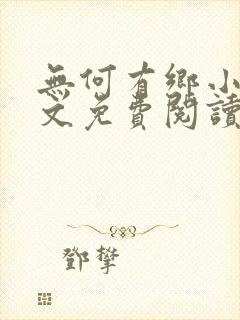 無何有鄉小
文免費閱讀
鄧攀